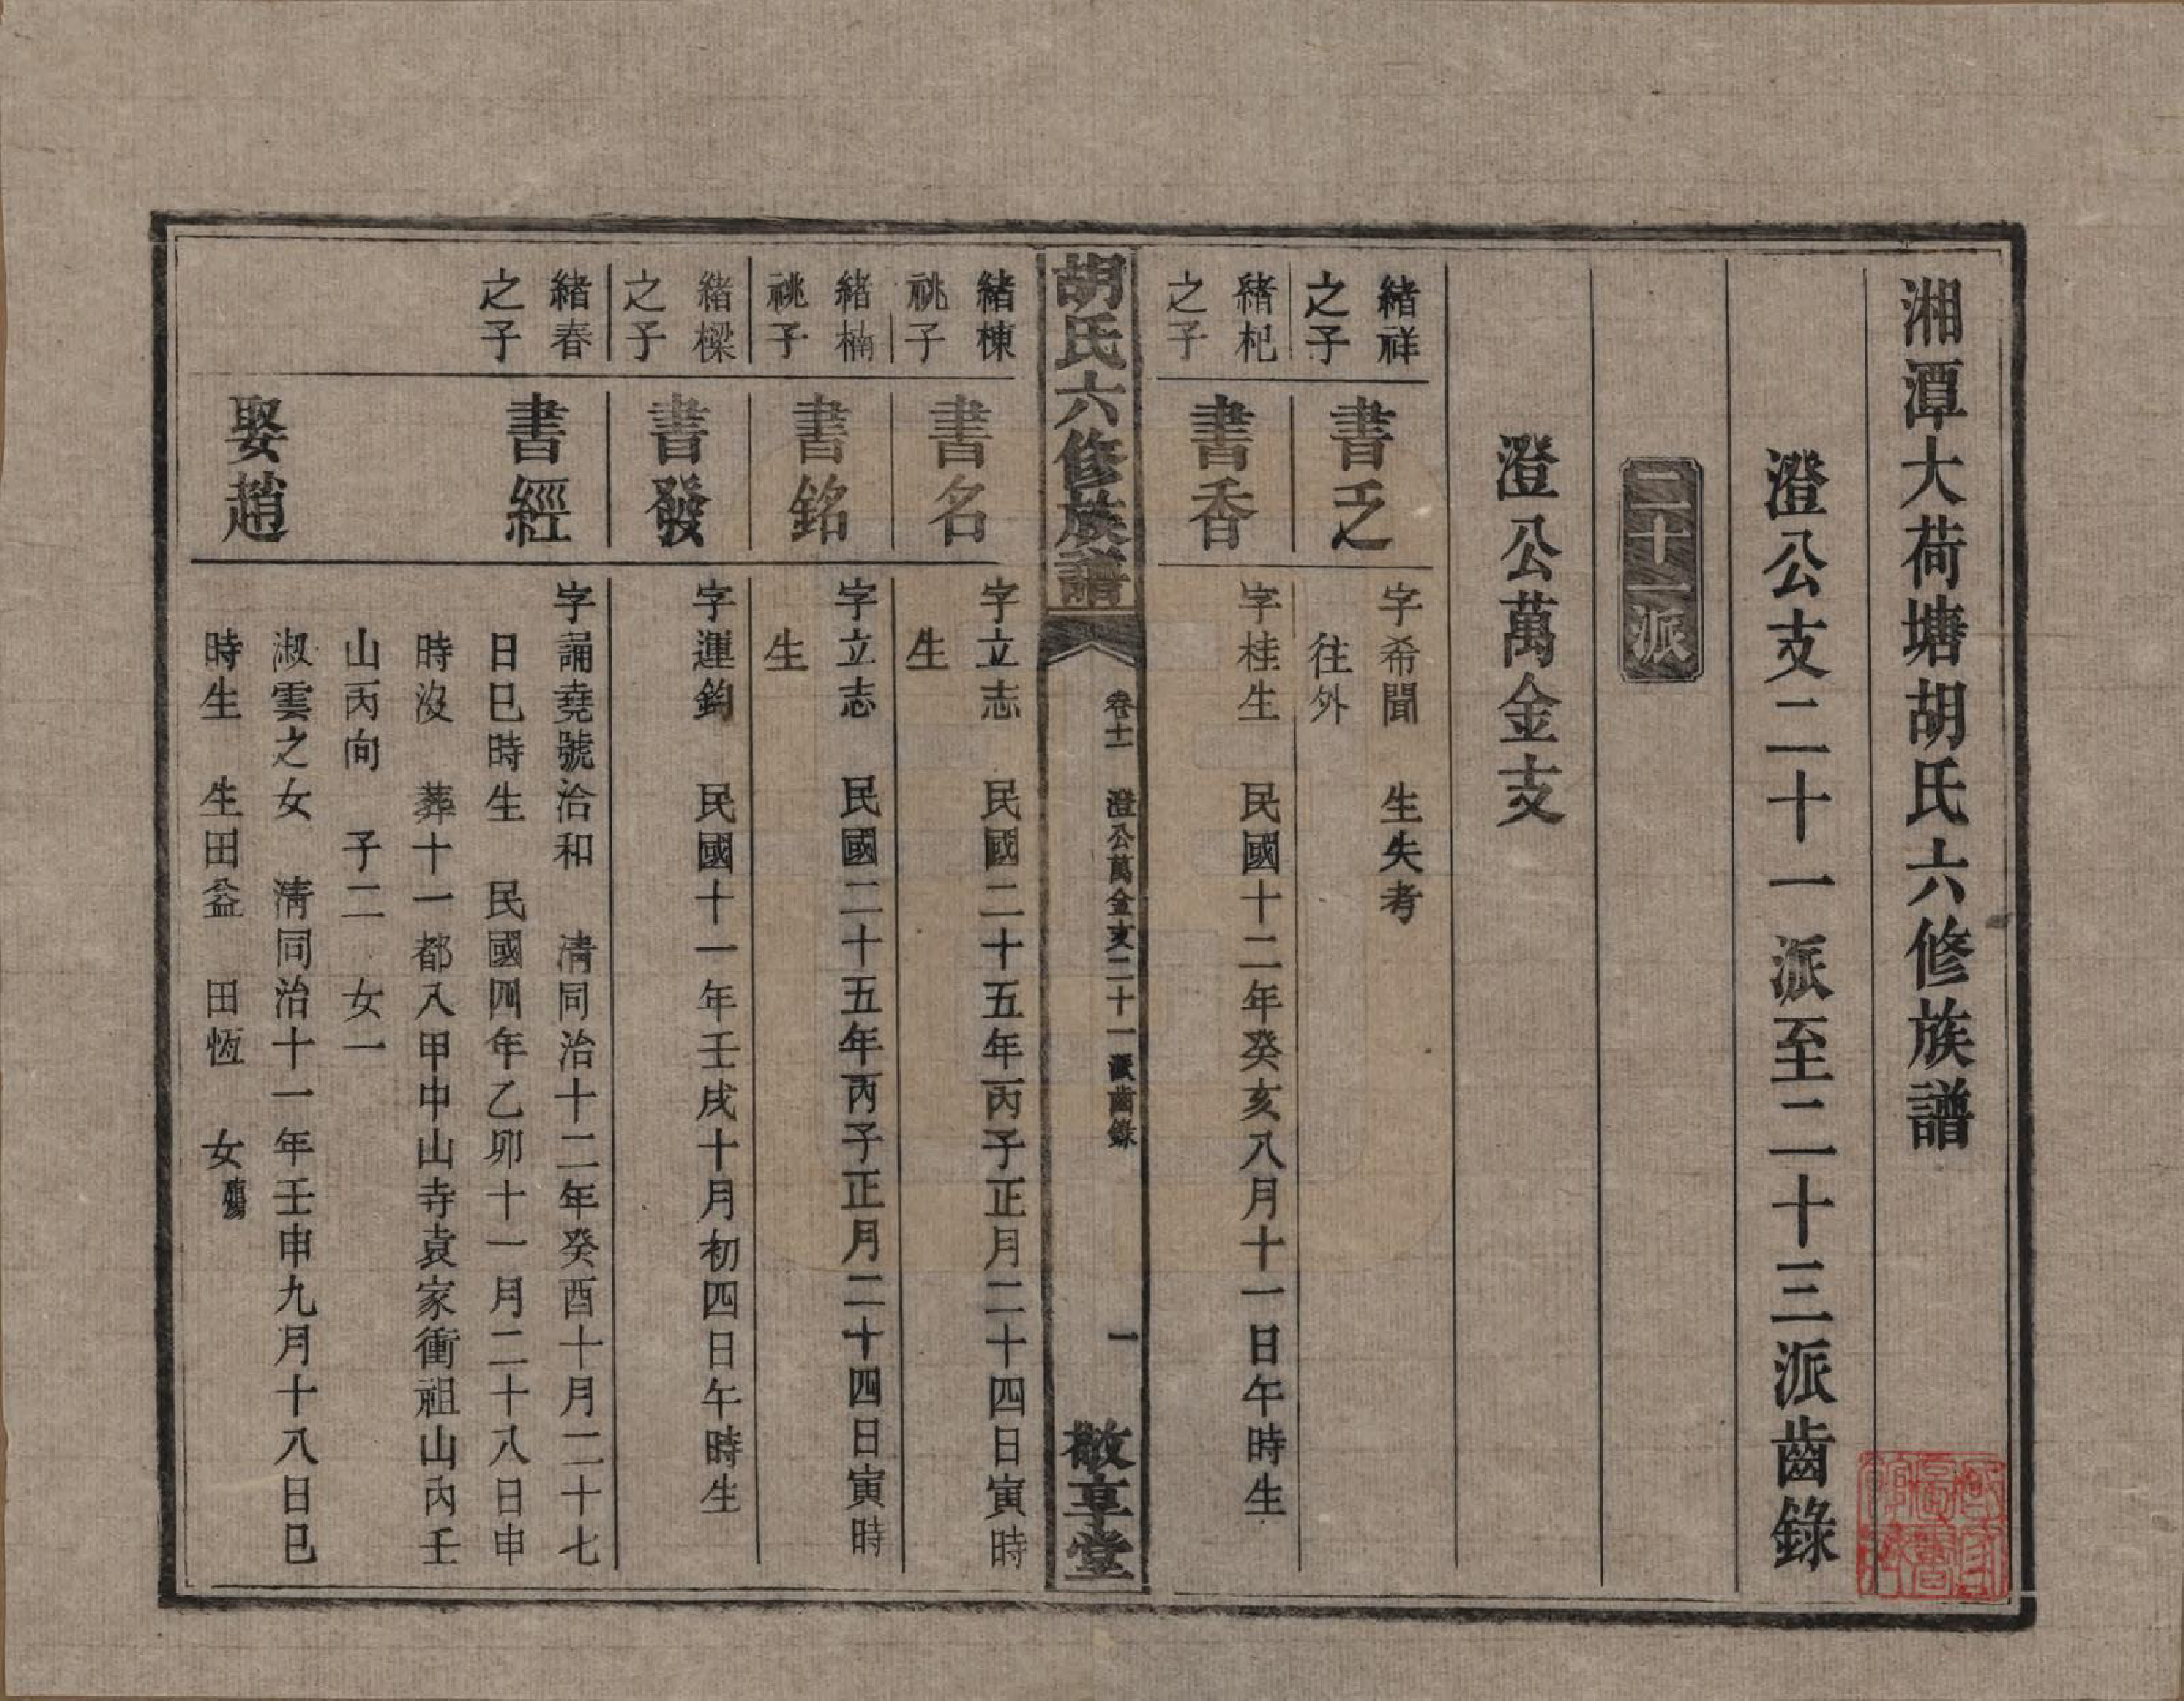 湘潭大荷塘胡氏六修族譜
澄公支二十一派至二十三派齒錄
二十一派
澄公萬金支
緒祥
之子
書乏
字希聞　生失考
往外
緒杞
之子
書香
字桂生　民國十二年癸亥八月十一日午時生
胡氏六修族譜
卷十一　澄公萬金支二十一派齒錄
一
敬享堂
緒棟
祧子
書名
字立志　民國二十五年丙子正月二十四日寅時
生
緒楠
祧子
書銘
字立志　民國二十五年丙子正月二十四日寅時
生
緒樑
之子
書發
字運鈞　民國十一年壬戌十月初四日午時生
緒春
之子
書經
字誦堯號治和　清同治十二年癸酉十月二十七
日巳時生　民國四年乙卯十一月二十八日申
時沒　葬十一都八甲中山寺袁家衝祖山內壬
山丙向　子二　女一
娶趙
淑雲之女　清同治十一年壬申九月十八日巳
時生　生田益　田恆　女